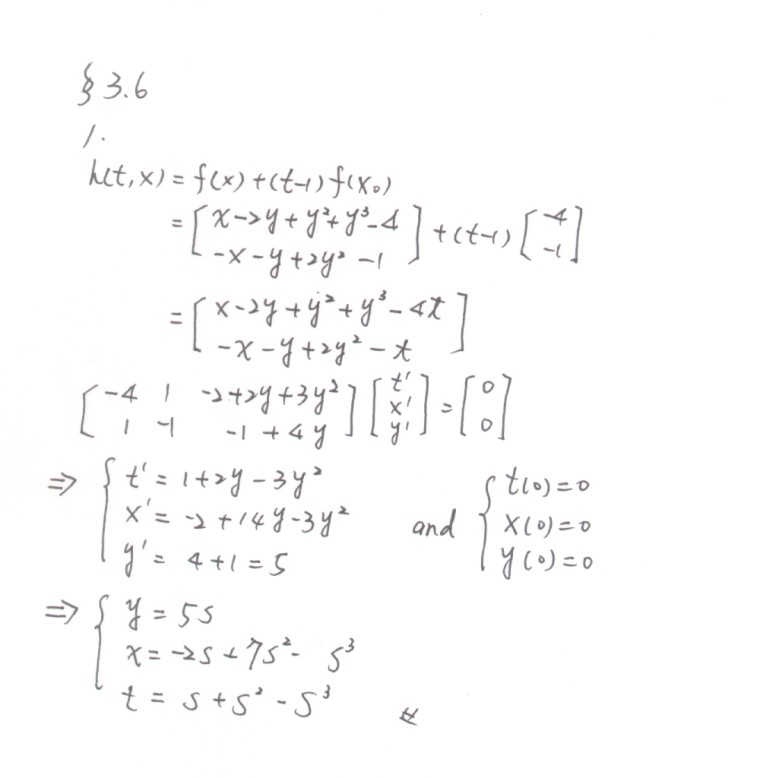 § 3.6
1.
h(t,x) = f(x) + (t-1) f(x₀)
= [ x-2y+y²+y³-4 ; -x-y+2y²-1 ] + (t-1) [ -4 ; -1 ]
= [ x-2y+y²+y³-4t ; -x-y+2y²-t ]
[ -4 1 -2+2y+3y² ; 1 -1 -1+4y ] [ t' ; x' ; y' ] = [ 0 ; 0 ]
⇒ { t' = 1+2y-3y²
x' = -2+14y-3y² and { t(0)=0 ; x(0)=0 ; y(0)=0
y' = 4+1 = 5
⇒ { y = 5s
x = -2s+7s²- s³
t = s+s²-s³ #